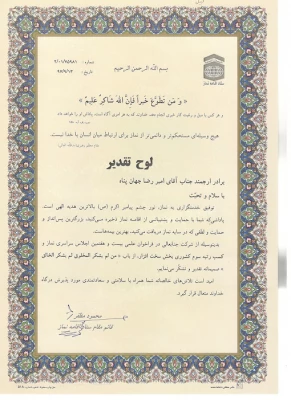 بسم الله الرحمن الرحیم
شماره :
تاریخ :
ستاد اقامه نماز
« وَ مَن تَطَوَّعَ خَیراً فَإنَّ اللهَ شاکِرٌ عَلیمٌ »
هیچ وسیله‌ای مستحکم‌تر و دائمی‌تر از نماز برای ارتباط میان انسان با خدا نیست.
لوح تقدیر
برادر ارجمند جناب آقای امیر رضا جهان پناه
با سلام و تحیّت
توفیق خدمتگزاری به نماز، نور چشم پیامبر اکرم (ص) بالاترین هدیه الهی است.
حمایت و لطفی که در سایه نماز دریافت می‌کنید، بهترین بیمه‌هاست.
بدینوسیله از شرکت جنابعالی در فراخوان علمی بیست و هفتمین اجلاس سراسری نماز و
کسب رتبه سوم کشوری بخش سخت افزار، از باب « من لم یشکر المخلوق لم یشکر الخالق
» صمیمانه تقدیر و تشکر می‌نمایم.
امید است تلاش‌های خالصانه شما همراه با سلامتی و سعادتمندی مورد پذیرش درگاه
خداوند متعال قرار گیرد.